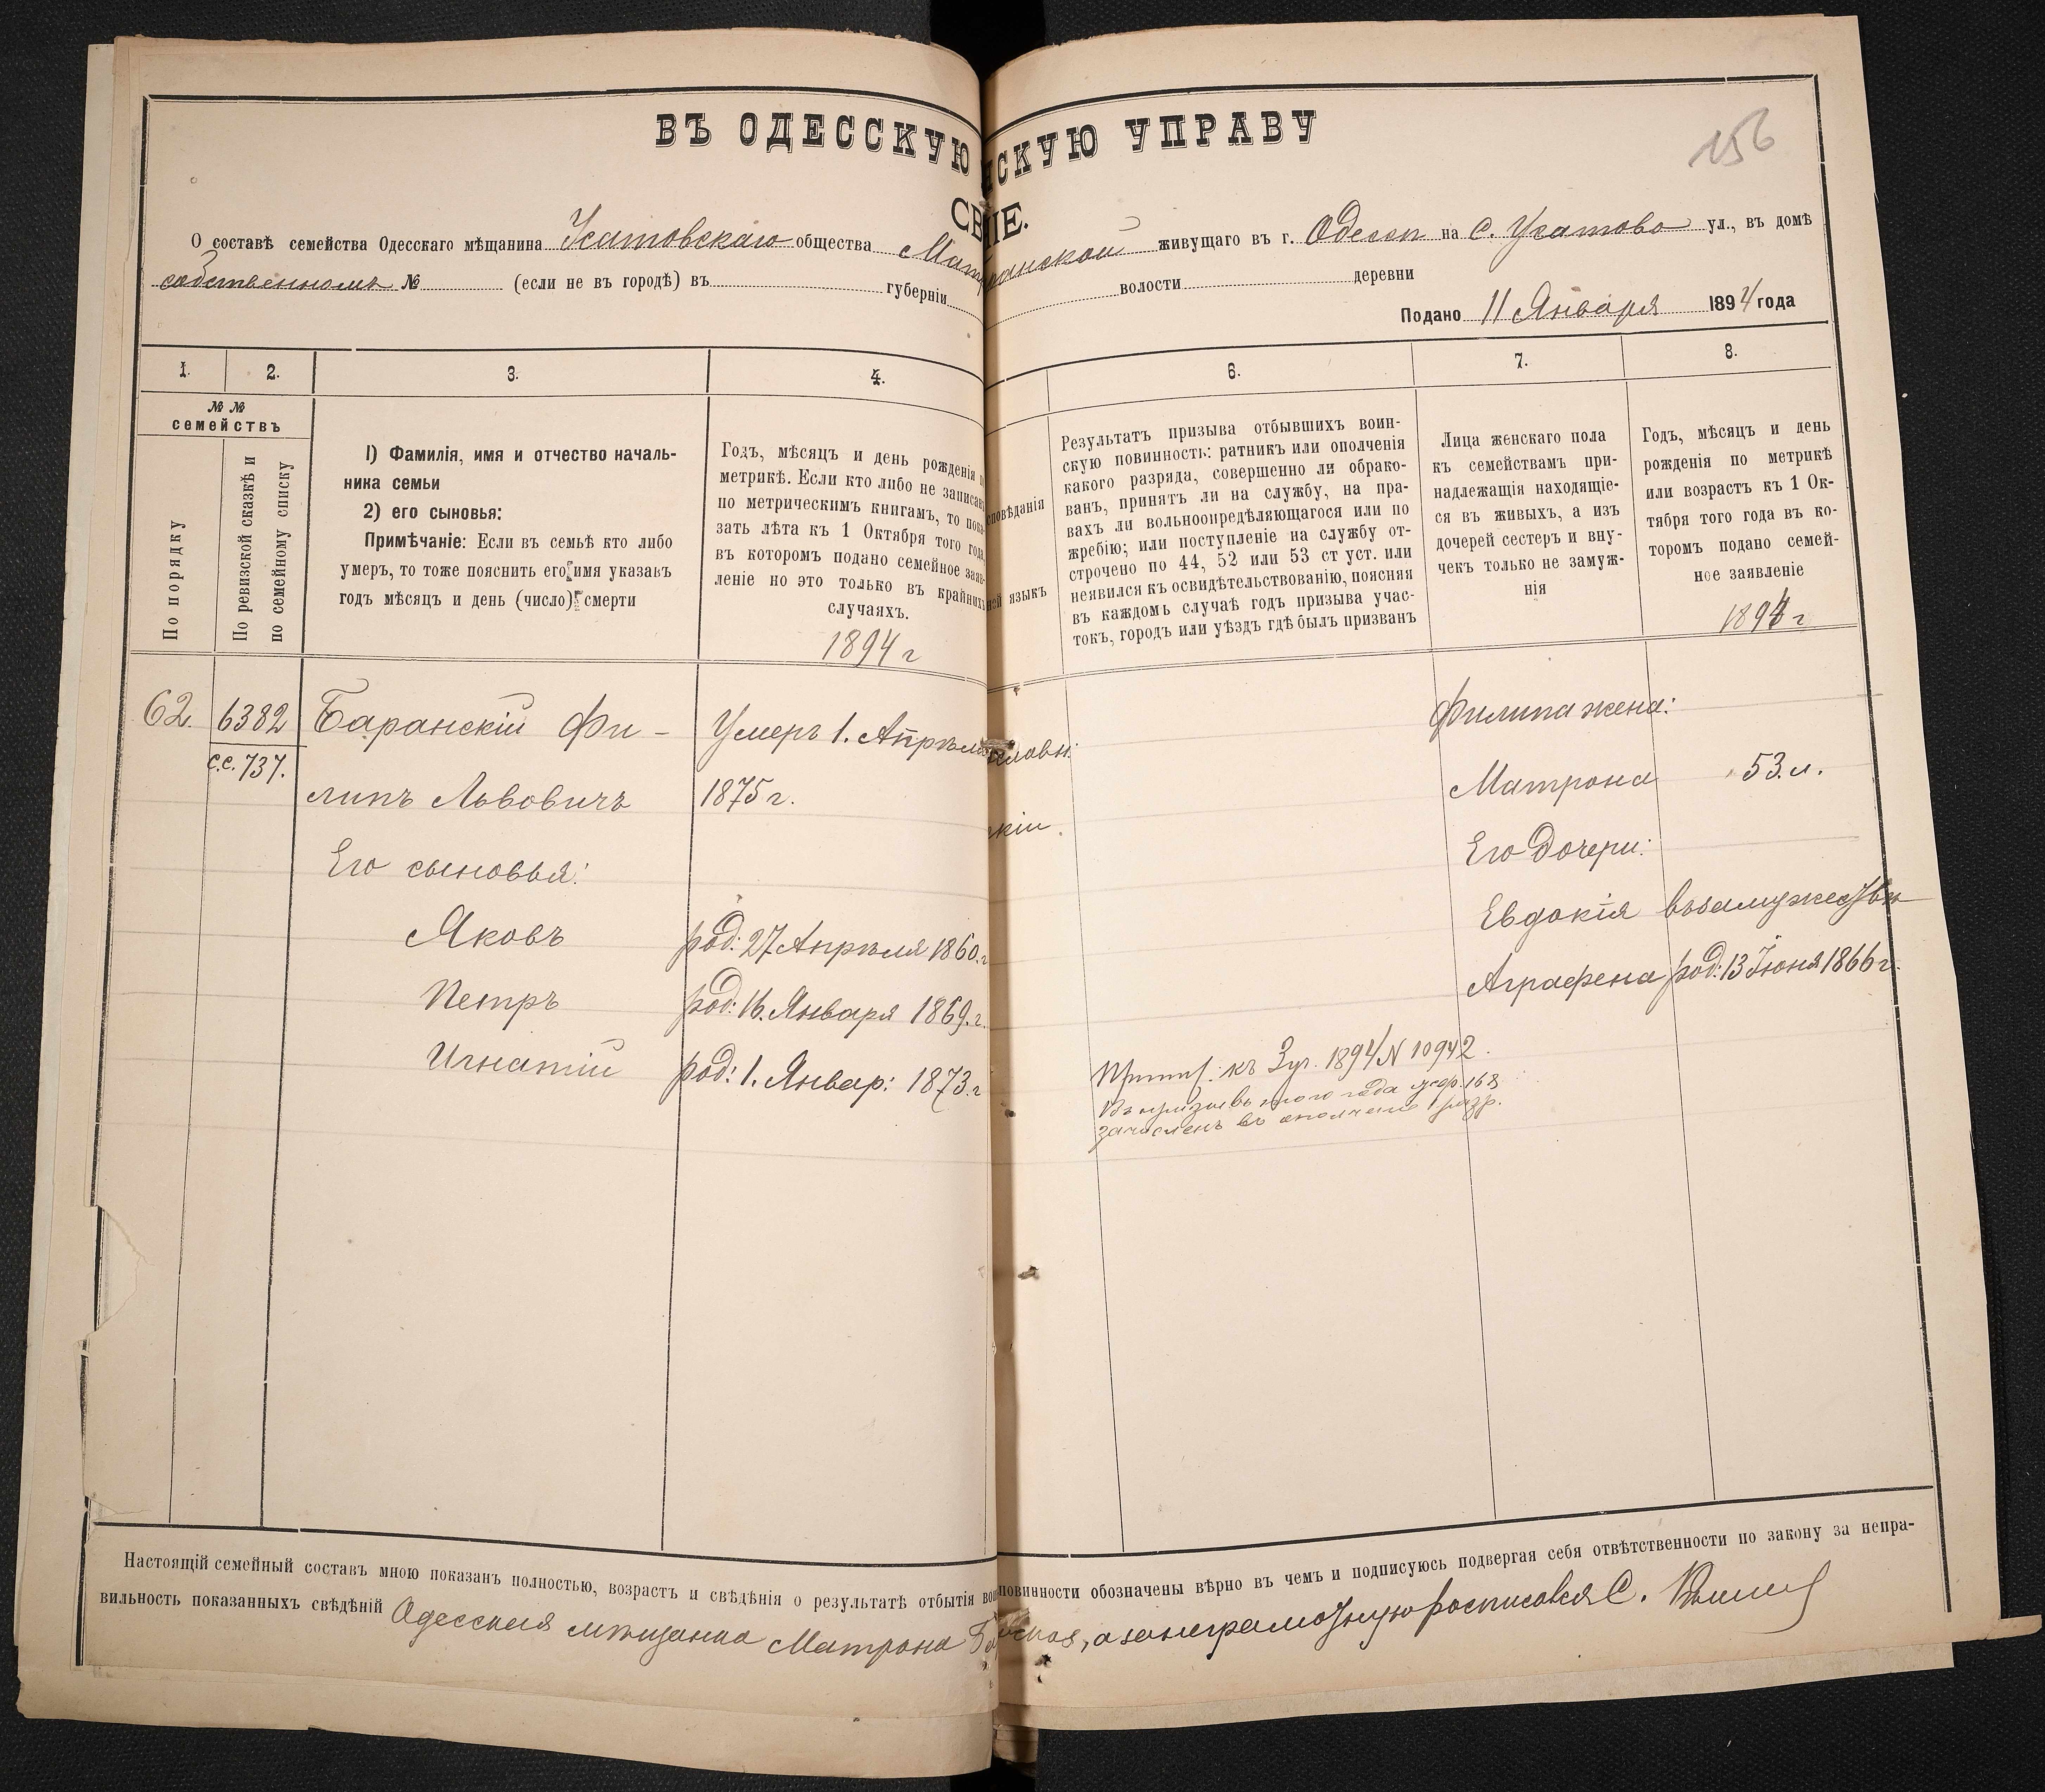 156
ВЪ ОДЕССКУЮ НСКУЮ УПРАВУ
СВ НІЕ.
О составѣ семейства Одесскаго мѣщанина Усатовскаго общества Мат ранской живущаго въ г. Одессѣ на с. Усатово ул., въ домѣ
собственномъ № (если не въ городѣ) въ губерніи волости деревни
Подано 11 Января 1894 года
1. 2. 3. 4. 6. 7. 8.
№ №
семействъ
По порядку
По ревизской сказкѣ и
по семейному списку
1) Фамилія, имя и отчество началь-
ника семьи
2) его сыновья:
Примѣчаніе: Если въ семьѣ кто либо
умеръ, то тоже пояснить его имя указавъ
годъ мѣсяцъ и день (число) смерти
Годъ, мѣсяцъ и день рожденія п
метрикѣ. Если кто либо не записан
по метрическимъ книгамъ, то пока-
зать лѣта къ 1 Октября того года,
въ которомъ подано семейное заяв-
леніе но это только въ крайнихъ
случаяхъ.
1894 г
сповѣданія
ной языкъ
Результатъ призыва отбывшихъ воин-
скую повинность: ратникъ или ополченія
какого разряда, совершенно ли обрако-
ванъ, принятъ ли на службу, на пра-
вахъ ли вольноопредѣляющагося или по
жребію; или поступленіе на службу от-
строчено по 44, 52 или 53 ст уст. или
неявился къ освидѣтельствованію, поясняя
въ каждомъ случаѣ годъ призыва учас-
токъ, городъ или уѣздъ гдѣ былъ призванъ
Лица женскаго пола
къ семействамъ при-
надлежащія находящіе-
ся въ живыхъ, а изъ
дочерей сестеръ и вну-
чекъ только не замуж-
нія
Годъ, мѣсяцъ и день
рожденія по метрикѣ
или возрастъ къ 1 Ок-
тября того года въ ко-
торомъ подано семей-
ное заявленіе
1894 г
62. 6382 Баранскій Фи- Умеръ 1. Апрѣля словн: Филипа жена:
с.с. 737.
липъ Львовичъ 1875 г. кій. Матрона 53. л.
Его сыновья: Его дочери:
Яковъ род: 27 Апрѣля 1860. г Евдокія въ замужествѣ
Петръ род: 16. Января 1869. г. Аграфена род: 13 Іюня 1866 г.
Игнатій род: 1. Январ: 1873. г
къ 3 уч. 1894 N 10942.
Въ призывъ этого года жер. 168
зачисленъ въ ополченіе 1 разр.
Настоящій семейный составъ мною показанъ полностью, возрастъ и свѣдѣнія о результатѣ отбытія вои повинности обозначены вѣрно въ чемъ и подписуюсь подвергая себя отвѣтственности по закону за непра-
вильность показанныхъ свѣдѣній Одесская мѣщанка Матрона Ба ская, а за неграмотную росписался С.